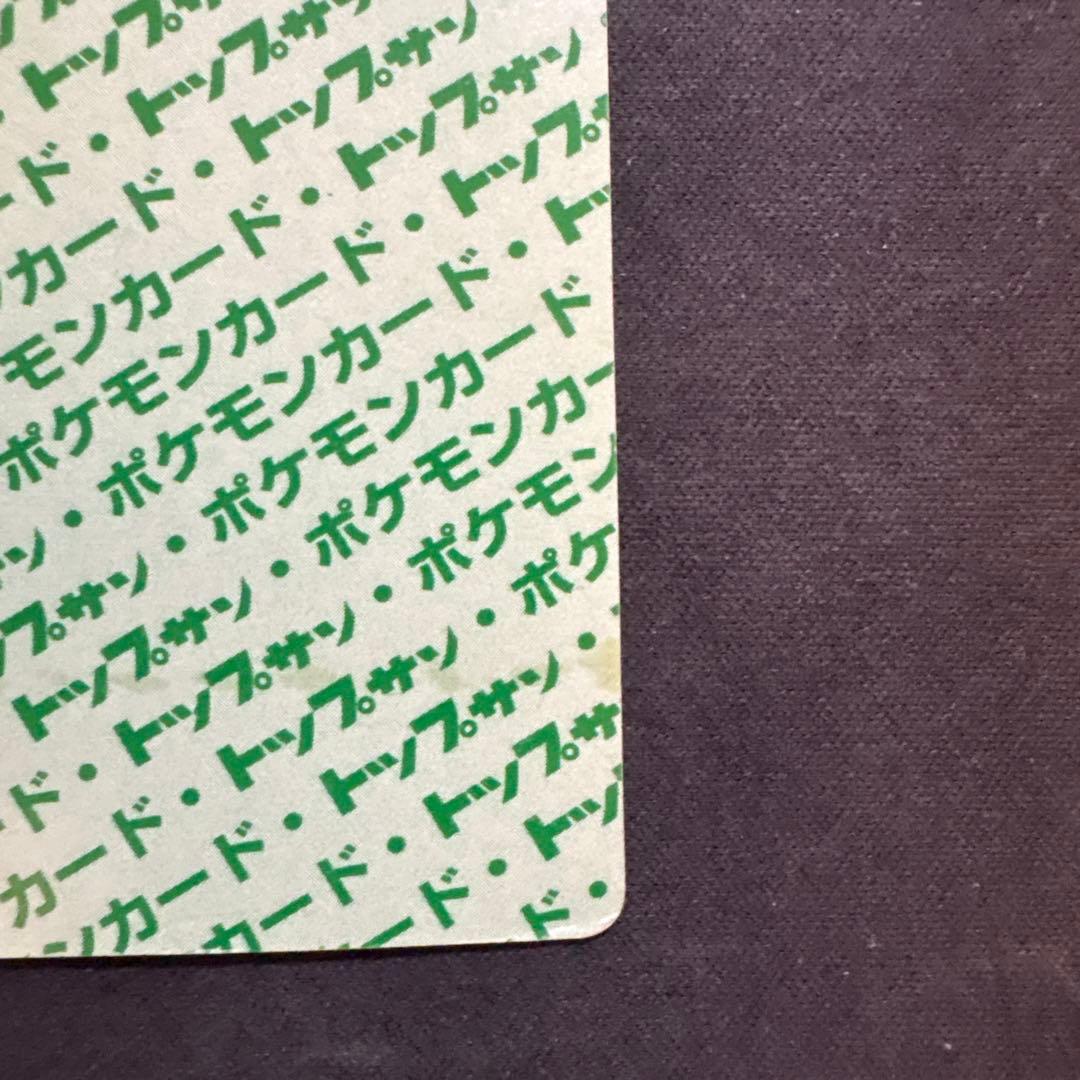 トップ
ード・トップサ
カード・トップサン
モンカード・トップサン
ポケモンカード・トップ
ン・ポケモンカード・ト
プサン・ポケモンカード
トップサン・ポケモンカー
ド・トップサン・ポケモン
カード・トップサン・ポケ
ンカード・トップサン・
カード・トップサ
ード・トッ
ド・